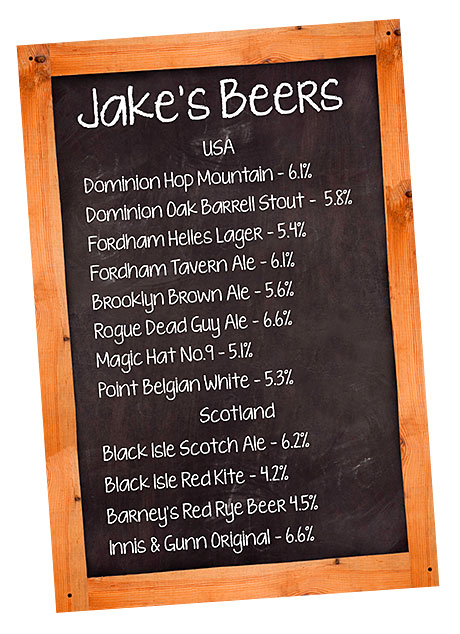 Jake's Beers
USA
Dominion Hop Mountain - 6.1%
Dominion Oak Barrell Stout - 5.8%
Fordham Helles Lager - 5.4%
Fordham Tavern Ale - 6.1%
Brooklyn Brown Ale - 5.6%
Rogue Dead Guy Ale - 6.6%
Magic Hat No.9 - 5.1%
Point Belgian White - 5.3%
Scotland
Black Isle Scotch Ale - 6.2%
Black Isle Red Kite - 4.2%
Barney's Red Rye Beer 4.5%
Innis & Gunn Original - 6.6%